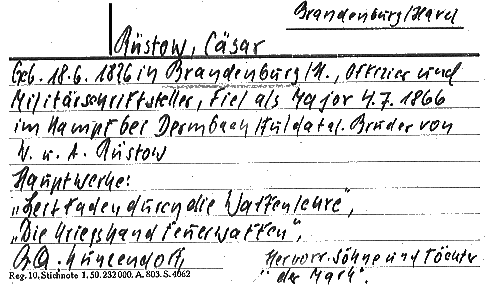 Brandenburg/Havel
Rüstow, Cäsar
Geb. 18.6.1826 in Brandenburg/H., Offizier und
Militärschriftsteller, Fiel als Major 4.7.1866
im Kampf bei Dermbach/Fuldatal. Bruder von
W. u. A. Rüstow
Hauptwerke:
„Leitfaden durch die Waffenlehre",
„Die Kriegshandfeuerwaffen",
Hervorr. Söhne und Töchter
"der Mark".
Reg. 10, Stichnote 1. 50. 232000. A. 803. S. 4062